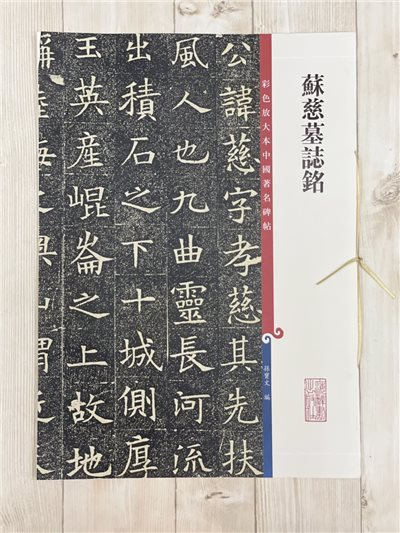 蘇慈墓誌銘
彩色放大本中國著名碑帖
孫寶文 編
公諱慈字孝慈其先扶
風人也九曲靈長河流
出積石之下十城側厚
玉英産崐崙之上故地